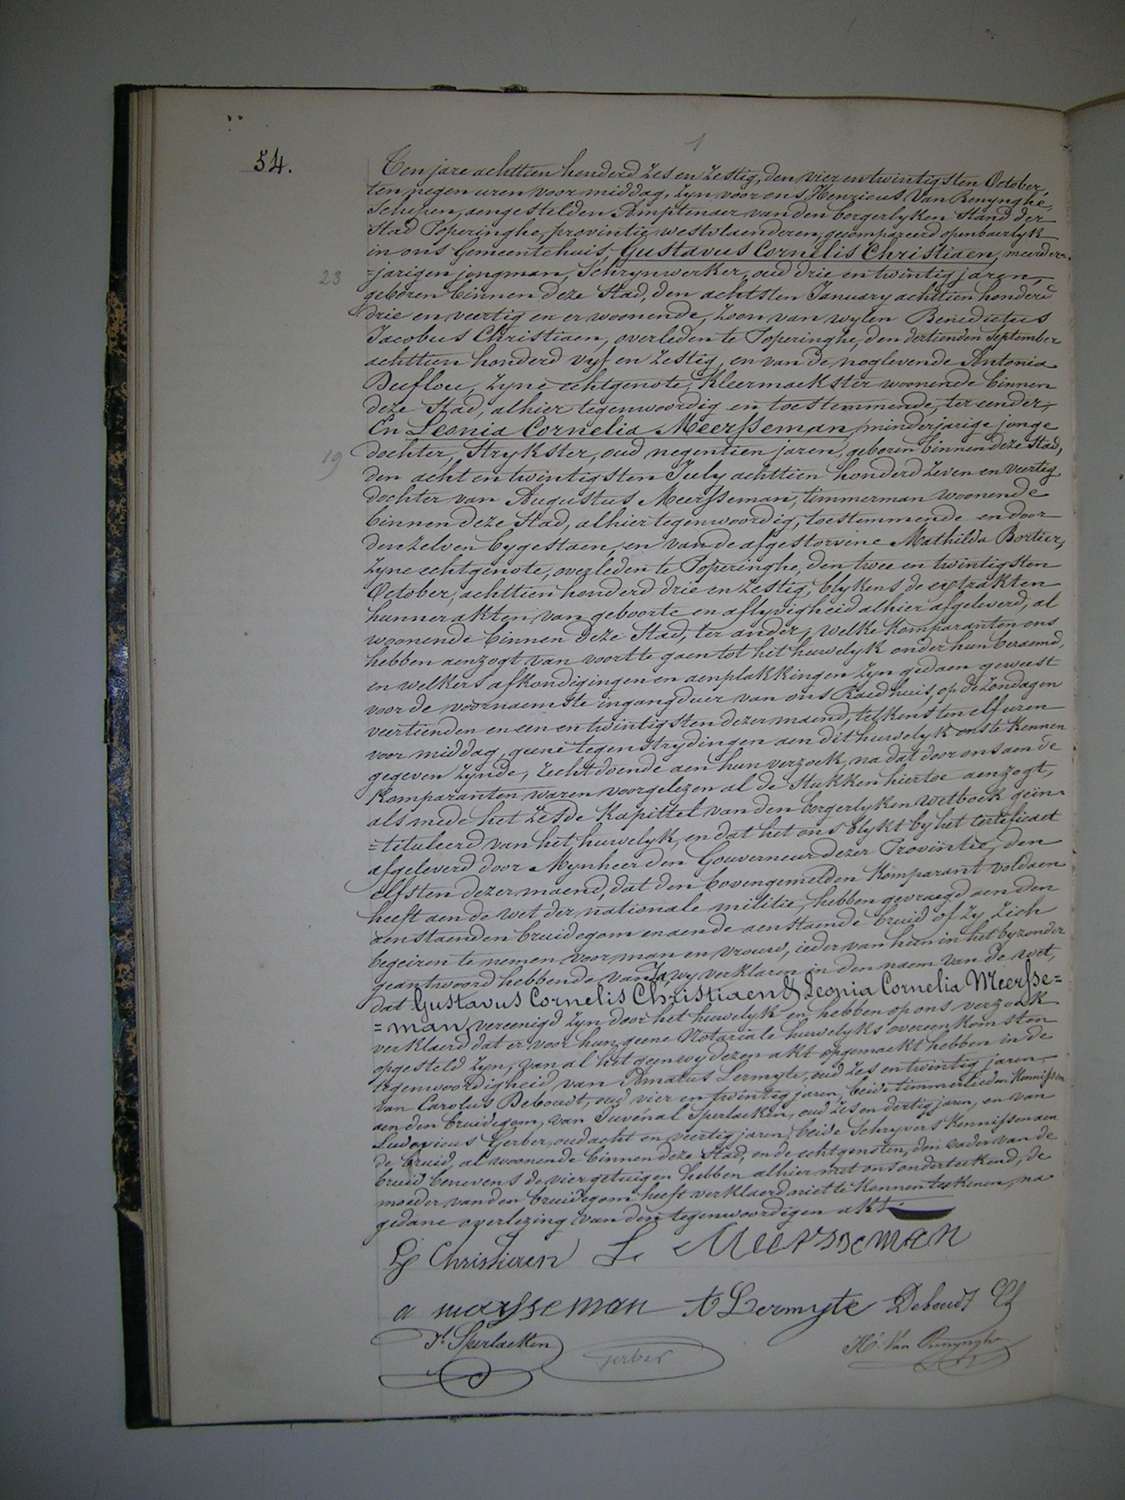 54.
Ten jare achttien honderd zes en zestig, den vier en twintigsten October,
ten negen uren voor middag, zyn voor ons Henricus Van Renynghe,
Schepen, aengestelden Amptenaer van den borgerlyken Stand der
Stad Poperinghe, provintie westvlaenderen, gecompareerd openbaerlyk
in ons Gemeentehuis, Gustavus Cornelis Christiaen, meerder-
23
=jarigen jongman, Schrynwerker, oud drie en twintig jaren,
geboren binnen deze Stad, den achtsten January achttien honderd
drie en veertig en er woonende, Zoon van wylen Benedictus
Jacobus Christiaen, overleden te Poperinghe, den dertienden September
achttien honderd vyf en zestig, en van de noglevende Antonia
Deeflou, zyne echtgenote, kleermaekster woonende binnen
deze Stad, alhier tegenwoordig en toestemmende, ter eender,
En Leonia Cornelia Meersseman, minderjarige jonge
19
dochter, Strykster, oud negentien jaren, geboren binnen deze Stad,
den acht en twintigsten July achttien honderd zeven en veertig
dochter van Augustus Meersseman, timmerman woonende
binnen deze Stad, alhier tegenwoordig, toestemmende en door
denzelven bygestaen, en van de afgestorvene Mathilda Bortier,
zyne echtgenote, overleden te Poperinghe, den twee en twintigsten
October, achttien honderd drie en zestig, blykens de extrakten
hunner akten van geboorte en aflyvigheid alhier afgeleverd, al
woonende binnen deze Stad, ter ander, welke komparanten ons
hebben aenzogt van voort te gaen tot het huwelyk onder hun beraemd,
en welkers afkondigingen en aenplakkingen zyn gedaen geweest
voor de voornaemste ingangdeur van ons Raedhuis, op de zondagen
veertienden en een en twintigsten dezer maend, telkens ten elf uren
voor middag, geene tegenstrydingen aen dit huwelyk ons te kennen
gegeven zynde, recht doende aen hun verzoek, na dat door ons aen de
komparanten waren voorgelezen al de Stukken hiertoe aenzogt,
als mede het zesde Kapittel van den borgerlyken wetboek gein-
=tituleerd van het huwelyk, en dat het ons blykt by het certificaet
afgeleverd door Mynheer den Gouverneur dezer Provintie, den
elfsten dezer maend, dat den bovengemelden komparant voldaen
heeft aen de wet der nationale militie, hebben gevraegd aen den
aenstaenden bruidegom en aen de aenstaende bruid of zy zich
begeiren te nemen voor man en vrouw, ieder van hun in het byzonder
geantwoord hebbende van Ja, wy verklaren in den naem van de wet,
dat Gustavus Cornelis Christiaen & Leonia Cornelia Meersse=
=man, vereenigd zyn door het huwelyk en hebben op ons verzoek
verklaerd dat er voor hun geene Notariale huwelyks overeenkomsten
opgesteld zyn, van al het geen wy dezen akt opgemaekt hebben in de
tegenwoordigheid van Amatus Lermyte, oud zes en twintig jaren,
van Carolus Deboudt, oud vier en twintig jaren, beide timmerlieden kennissen
aen den bruidegom, van Juvénal Sperlaeken, oud zes en dertig jaren, en van
Ludovicus Gerber, oud acht en veertig jaren, beide Schryvers kennissen aen
de bruid, al woonende binnen deze Stad, en de echtgenoten, den vader van de
bruid benevens de vier getuigen hebben alhier met ons onderteekend, de
moeder van den bruidegom heeft verklaerd niet te kennen teekenen, na
gedane overlezing van den tegenwoordigen akt.
G Christiaen L. Meersseman
a meersseman A Lermyte Deboudt Ch
J. Sperlaeken gerber H. Van Renynghe